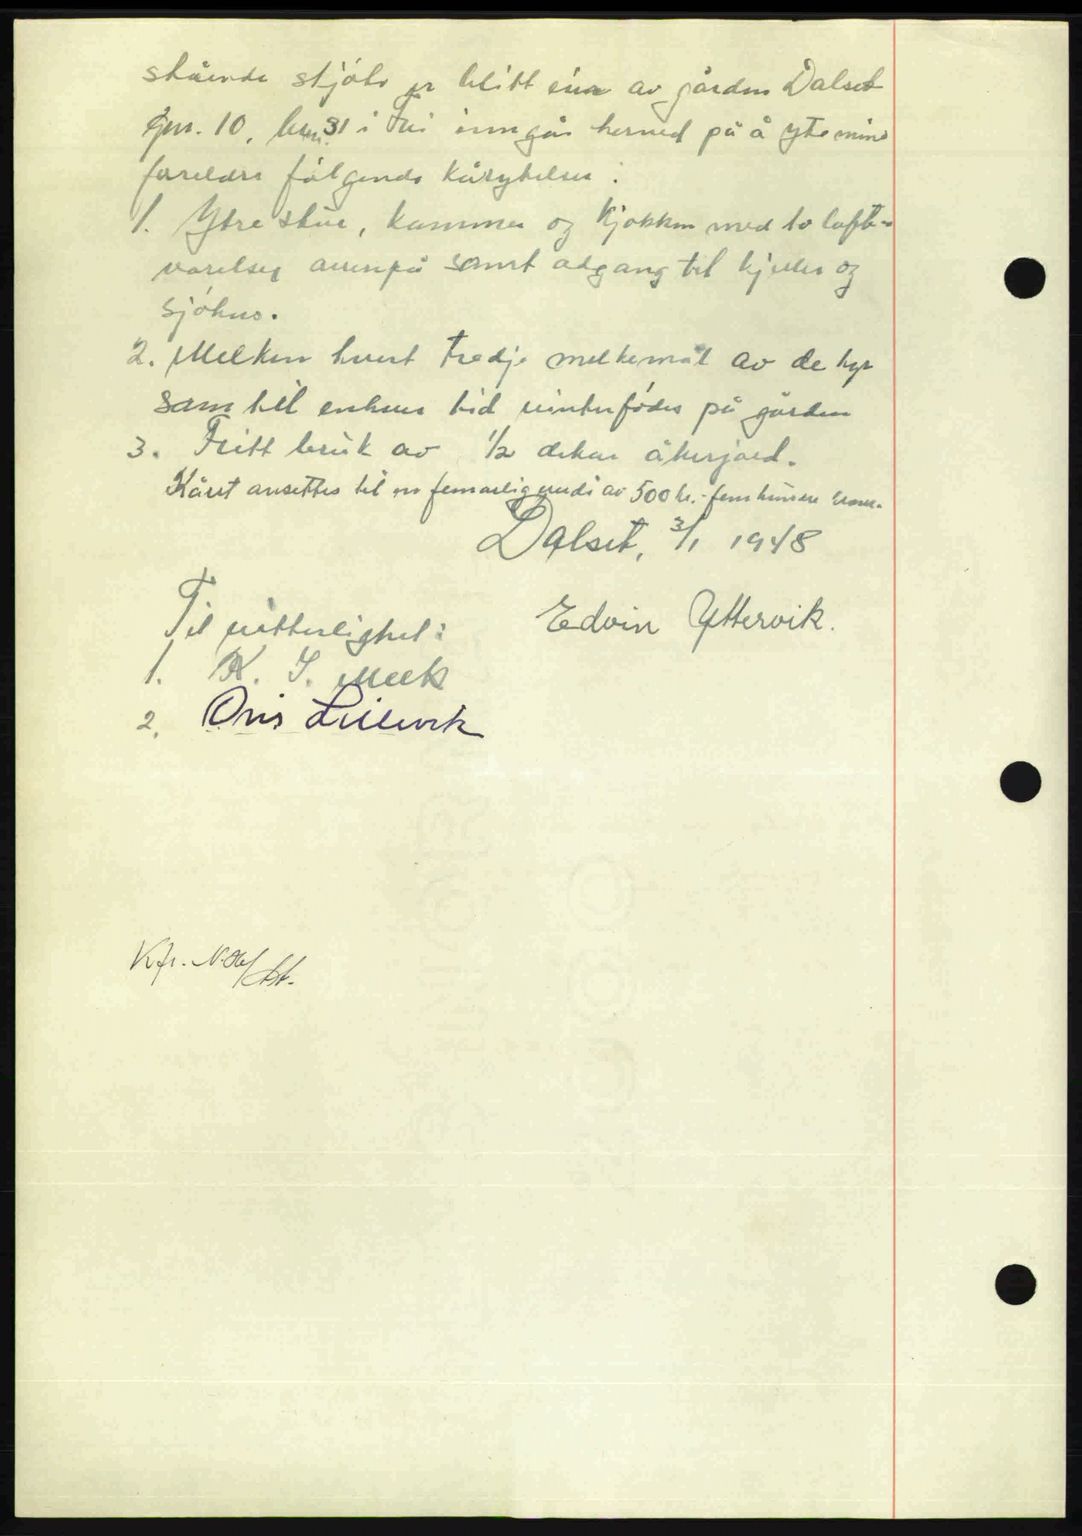 stående skjöte er blitt eier av gården Dalset
gnr. 10, bnr. 31 i Frei inngår herved på å yte mine
foreldre følgende kårytelser:
1. Ytre stue, kammer og kjøkken med to lofts-
værelser ovenpå samt adgang til kjeller og
sjöhus.
2. Melken hvert tredje melkemål av de kyr
som til enhver tid vinterfödes på gården
3. Fritt bruk av 1/2 dekar åkerjord.
Kåret ansettes til en femårlig verdi av 500 kr. - fem hundre kroner.
Dalset, 3/1 1948
Til vitterlighet: Edvin Yttervik.
1. K. S. Meek
2. Onis Lillevik
Kfr.